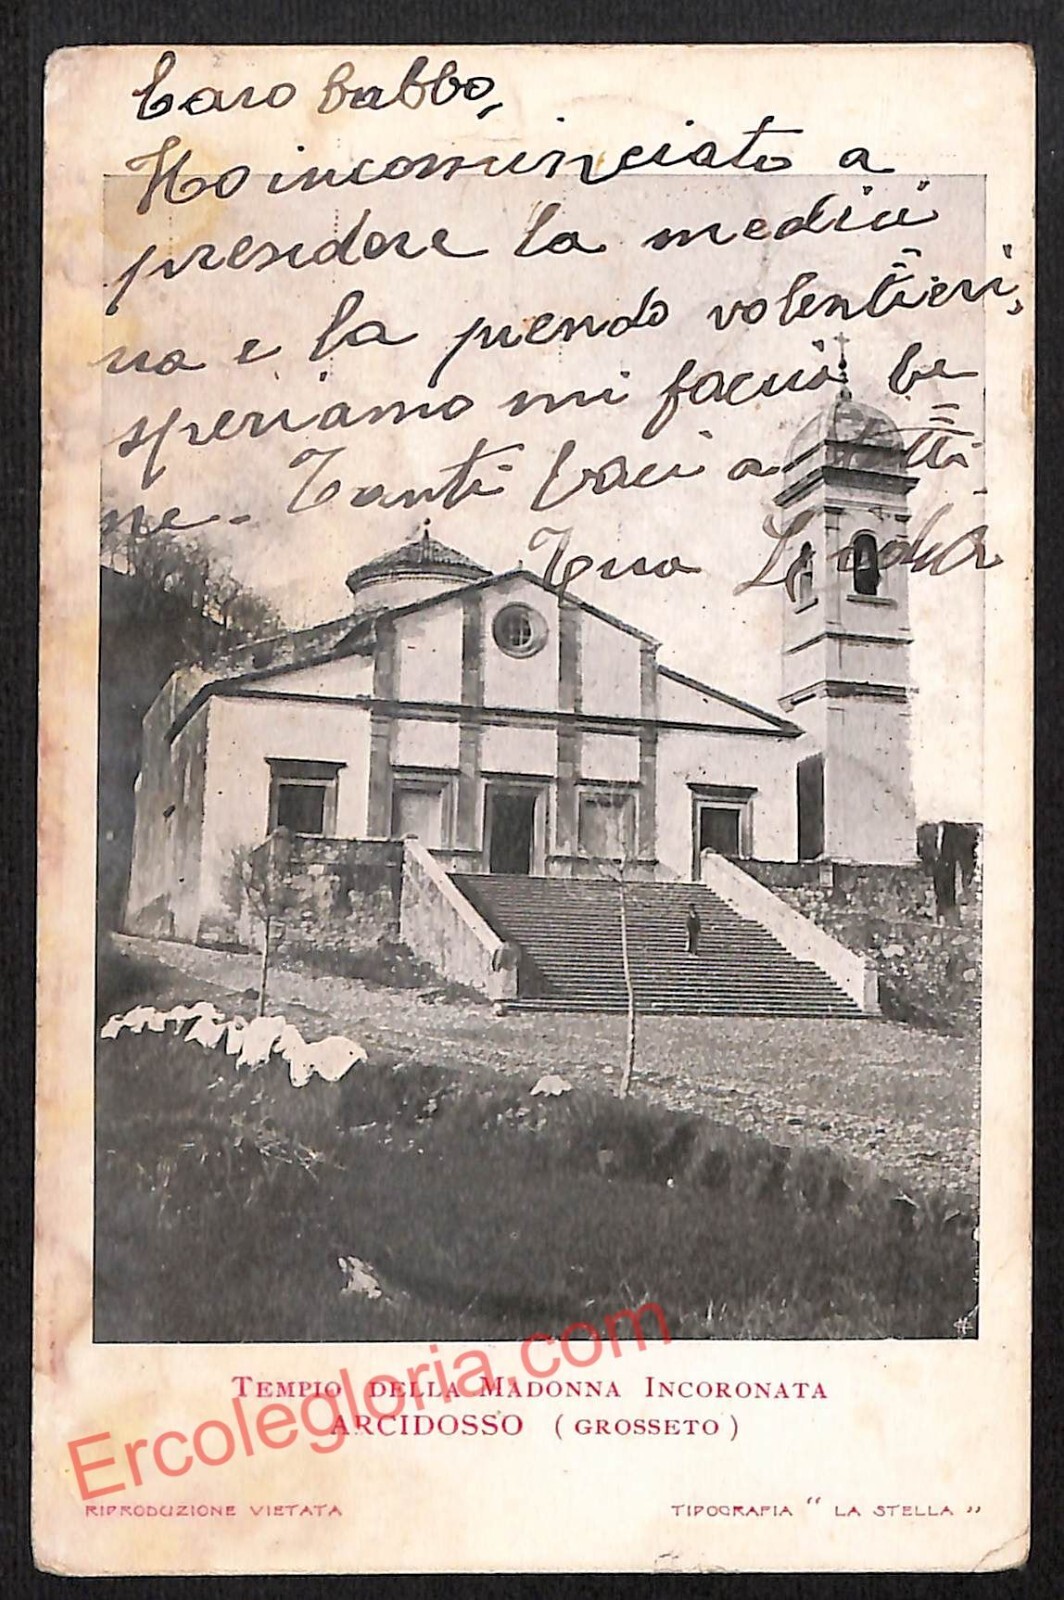 Caro babbo,
Ho incominciato a
prendere la medici
na e la prendo volentieri,
speriamo mi faccia be
ne. Tanti baci a tutti
Tua
TEMPIO DELLA MADONNA INCORONATA
ARCIDOSSO (GROSSETO)
Ercolegloria.com
RIPRODUZIONE VIETATA
TIPOGRAFIA "LA STELLA"